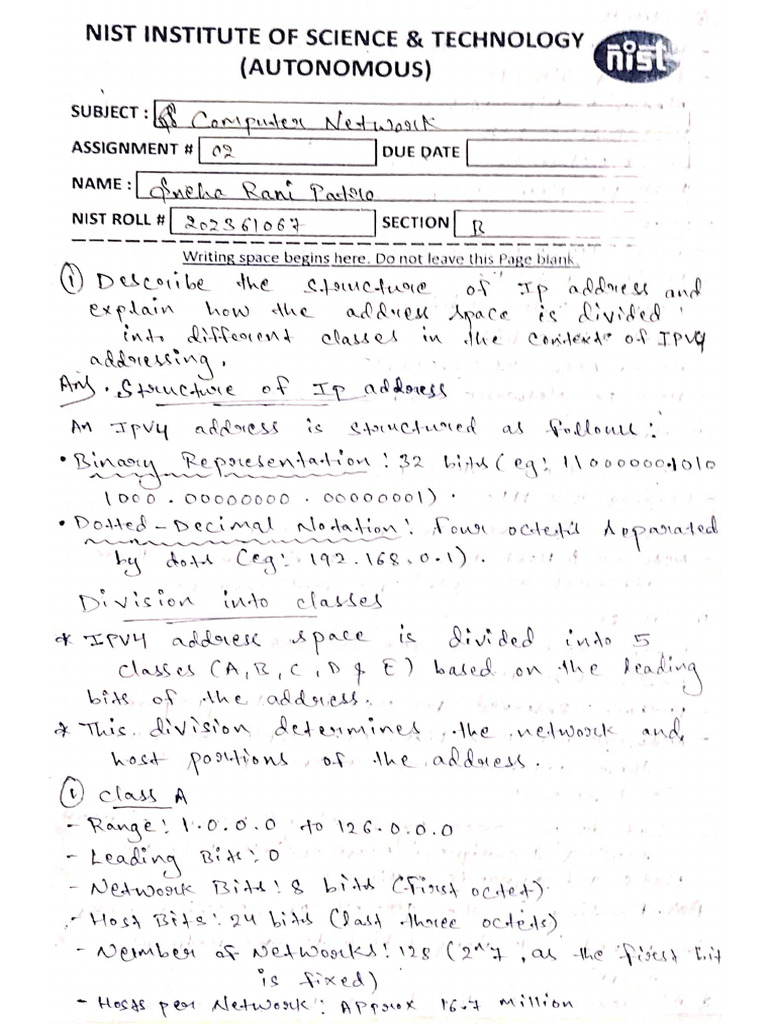 NIST INSTITUTE OF SCIENCE & TECHNOLOGY
(AUTONOMOUS)
nist
SUBJECT : Computer Network
ASSIGNMENT # 02 DUE DATE
NAME : Sneha Rani Patro
NIST ROLL # 202361067 SECTION B
Writing space begins here. Do not leave this Page blank.
① Describe the structure of Ip address and
explain how the address space is divided
into different classes in the context of IPV4
addressing.
Ans. Structure of Ip address
An IPV4 address is structured as follows:
• Binary Representation : 32 bits (eg: 11000000.1010
1000.00000000.00000001).
• Dotted-Decimal Notation: Four octets separated
by dots (eg: 192.168.0.1).
Division into classes
* IPV4 address space is divided into 5
classes (A, B, C, D & E) based on the leading
bits of the address.
* This division determines the network and
host portions of the address.
① class A
- Range: 1.0.0.0 to 126.0.0.0
- Leading Bits: 0
- Network Bits: 8 bits (First octet)
- Host Bits: 24 bits (last three octets)
- Number of Networks: 128 (2^7, as the first bit
is fixed)
- Hosts per Network: Approx 16.7 million